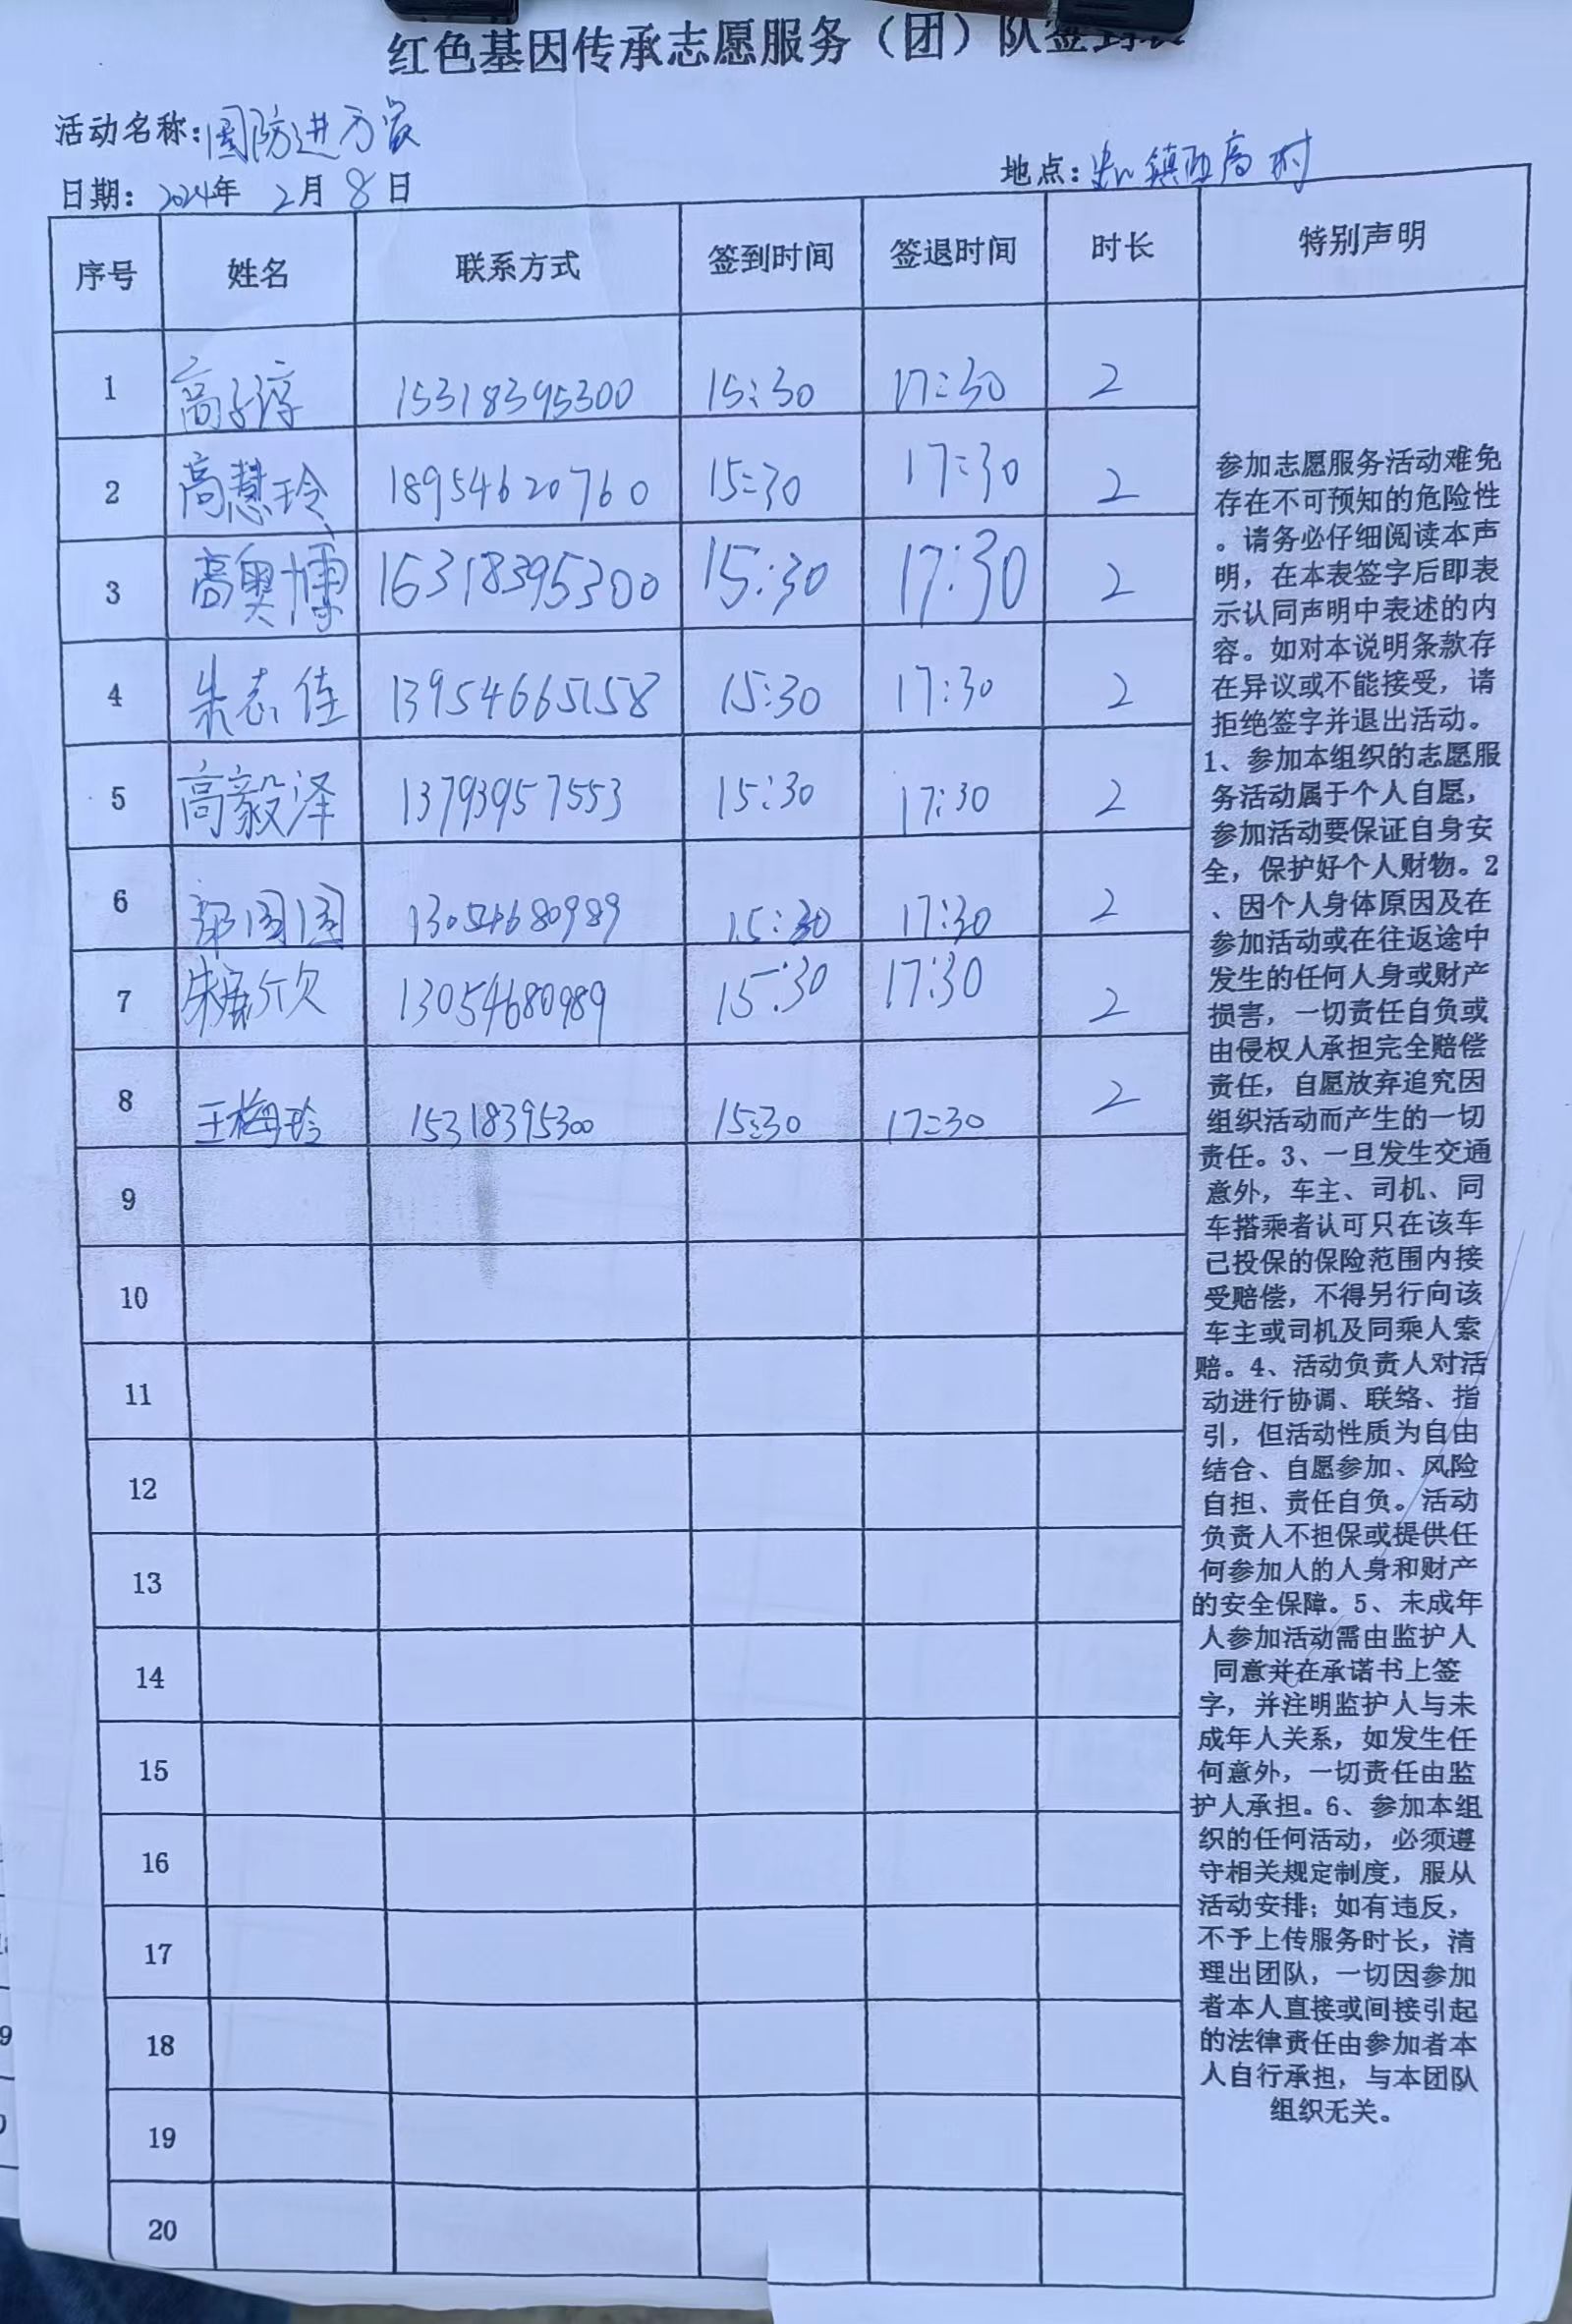 红色基因传承志愿服务（团）队签到表
活动名称：国防进万家
日期：2024年 2月 8日
地点：镇西高村
序号 姓名 联系方式 签到时间 签退时间 时长 特别声明
1 高子淳 15318395300 15:30 17:30 2
2 高慧玲 18954620760 15:30 17:30 2
3 高奥博 15318395300 15:30 17:30 2
4 朱志佳 13954665158 15:30 17:30 2
5 高毅泽 13793957553 15:30 17:30 2
6 13054680989 15:30 17:30 2
7 13054680989 15:30 17:30 2
8 王梅玲 15318395300 15:30 17:30 2
9
10
11
12
13
14
15
16
17
18
19
20
参加志愿服务活动难免
存在不可预知的危险性
。请务必仔细阅读本声
明，在本表签字后即表
示认同声明中表述的内
容。如对本说明条款存
在异议或不能接受，请
拒绝签字并退出活动。
1、参加本组织的志愿服
务活动属于个人自愿，
参加活动要保证自身安
全，保护好个人财物。2
、因个人身体原因及在
参加活动或在往返途中
发生的任何人身或财产
损害，一切责任自负或
由侵权人承担完全赔偿
责任，自愿放弃追究因
组织活动而产生的一切
责任。3、一旦发生交通
意外，车主、司机、同
车搭乘者认可只在该车
已投保的保险范围内接
受赔偿，不得另行向该
车主或司机及同乘人索
赔。4、活动负责人对活
动进行协调、联络、指
引，但活动性质为自由
结合、自愿参加、风险
自担、责任自负。活动
负责人不担保或提供任
何参加人的人身和财产
的安全保障。5、未成年
人参加活动需由监护人
同意并在承诺书上签
字，并注明监护人与未
成年人关系，如发生任
何意外，一切责任由监
护人承担。6、参加本组
织的任何活动，必须遵
守相关规定制度，服从
活动安排；如有违反，
不予上传服务时长，清
理出团队，一切因参加
者本人直接或间接引起
的法律责任由参加者本
人自行承担，与本团队
组织无关。